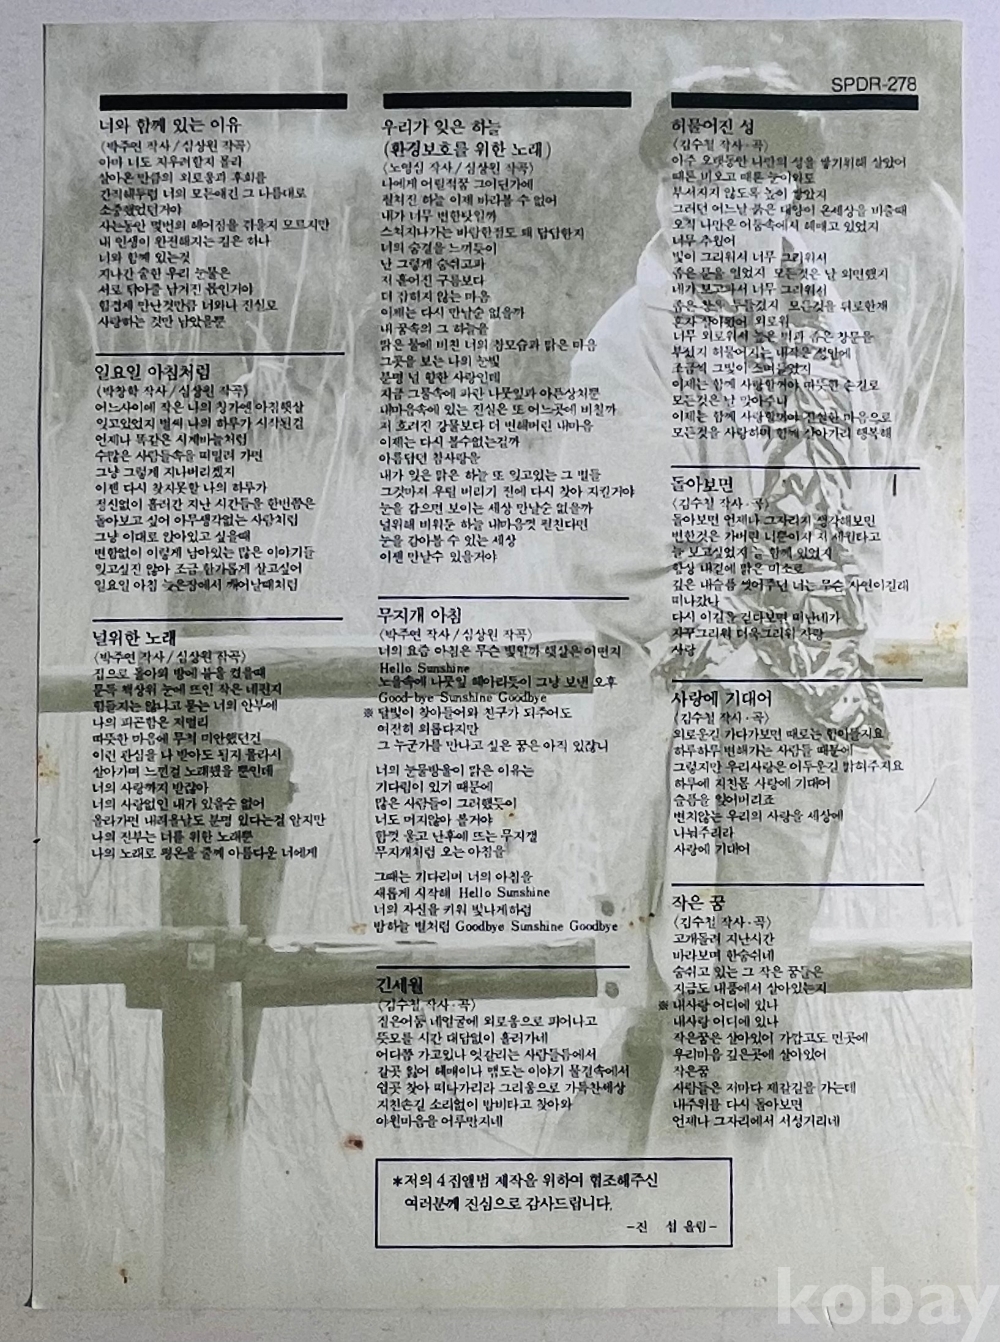 SPDR-278
너와 함께 있는 이유
(박주연 작사 / 심상원 작곡)
아마 너도 지우려할지 몰라
살아온 만큼의 외로움과 후회를
간직해두렴 너의 모든얘긴 그 나름대로
소중했었던거야
사는동안 몇번의 헤어짐을 겪을지 모르지만
내 인생이 완전해지는 길은 하나
너와 함께 있는것
지나간 숱한 우리 눈물은
서로 닦아줄 남겨진 몫인거야
힘겹게 만난것만큼 너와나 진실로
사랑하는 것만 남았을뿐
일요일 아침처럼
(박창학 작사 / 심상원 작곡)
어느사이에 작은 나의 창가엔 아침햇살
잊고있었지 벌써 나의 하루가 시작된걸
언제나 똑같은 시계바늘처럼
수많은 사람들속을 떠밀려 가면
그냥 그렇게 지나버리겠지
이젠 다시 찾지못할 나의 하루가
정신없이 흘러간 지난 시간들을 한번쯤은
돌아보고 싶어 아무생각없는 사람처럼
그냥 이대로 앉아있고 싶을때
변함없이 이렇게 남아있는 많은 이야기들
잊고싶진 않아 조금 한가롭게 살고싶어
일요일 아침 늦은잠에서 깨어날때처럼
널위한 노래
(박주연 작사 / 심상원 작곡)
집으로 돌아와 방에 불을 켰을때
문득 책상위 눈에 뜨인 작은 네편지
힘들지는 않냐고 묻는 너의 안부에
나의 피곤함은 저멀리
따뜻한 마음에 무척 미안했던건
이런 관심을 나 받아도 될지 몰라서
살아가며 느낀걸 노래했을 뿐인데
너의 사랑까지 받잖아
너의 사랑없인 내가 있을순 없어
올라가면 내려올날도 분명 있다는걸 알지만
나의 전부는 너를 위한 노래뿐
나의 노래로 평온을 줄께 아름다운 너에게
우리가 잊은 하늘
(환경보호를 위한 노래)
(노영심 작사 / 심상원 작곡)
나에게 어릴적꿈 그어딘가에
펼쳐진 하늘 이제 바라볼 수 없어
내가 너무 변한탓일까
스쳐지나가는 바람한점도 왜 답답한지
너의 숨결을 느끼듯이
난 그렇게 숨쉬고파
저 흩어진 구름보다
더 잡히지 않는 마음
이제는 다시 만날순 없을까
내 꿈속의 그 하늘을
맑은 물에 비친 너의 참모습과 맑은 마음
그곳을 보는 나의 눈빛
분명 널 향한 사랑인데
지금 그물속에 파란 나뭇잎과 아픈상처뿐
내마음속에 있는 진실은 또 어느곳에 비칠까
저 흐려진 강물보다 더 변해버린 내마음
이제는 다시 볼수없는걸까
아름답던 참사랑을
내가 잊은 맑은 하늘 또 잊고있는 그 별들
그것마저 우릴 버리기 전에 다시 찾아 지킬거야
눈을 감으면 보이는 세상 만날순 없을까
널위해 비워둔 하늘 내마음껏 펼친다면
눈을 감아볼 수 있는 세상
이젠 만날수 있을거야
무지개 아침
(박주연 작사 / 심상원 작곡)
너의 요즘 아침은 무슨 빛일까 햇살은 어떤지
Hello Sunshine
노을속에 나뭇잎 헤아리듯이 그냥 보낸 오후
Good-bye Sunshine Goodbye
※ 달빛이 찾아들어와 친구가 되주어도
여전히 외롭다지만
그 누군가를 만나고 싶은 꿈은 아직 있잖니
너의 눈물방울이 맑은 이유는
기다림이 있기 때문에
많은 사람들이 그러했듯이
너도 머지않아 볼거야
함껏 울고 난후에 뜨는 무지갤
무지개처럼 오는 아침을
그때는 기다리며 너의 아침을
새롭게 시작해 Hello Sunshine
너의 자신을 키워 빛나게하렴
밤하늘 별처럼 Goodbye Sunshine Goodbye
긴세월
(김수철 작사·곡)
짙은어둠 네얼굴에 외로움으로 피어나고
뜻모를 시간 대답없이 흘러가네
어디쯤 가고있나 엇갈리는 사람들틈에서
갈곳 잃어 헤매이나 맴도는 이야기 물결속에서
쉴곳 찾아 떠나가리라 그리움으로 가득찬세상
지친손길 소리없이 밤비타고 찾아와
야윈마음을 어루만지네
허물어진 성
(김수철 작사·곡)
아주 오랫동안 나만의 성을 쌓기위해 살았어
때론 비오고 때론 눈이와도
부서지지 않도록 높이 쌓았지
그러던 어느날 붉은 태양이 온세상을 비출때
오직 나만은 어둠속에서 헤매고 있었지
너무 추웠어
빛이 그리워서 너무 그리워서
좁은 문을 열었지 모든것은 날 외면했지
네가 보고파서 너무 그리워서
좁은 창문 두들겼지 모든것을 뒤로한채
혼자 살아왔어 외로워
너무 외로워서 높은 벽과 좁은 창문을
부쉈지 허물어지는 내작은 성안에
조금씩 그빛이 스며들었지
이제는 함께 사랑할꺼야 따뜻한 손길로
모든것은 날 맞아주니
이제는 함께 사랑할꺼야 진실한 마음으로
모든것을 사랑하며 함께 살아가리 행복해
돌아보면
(김수철 작사·곡)
돌아보면 언제나 그자리지 생각해보면
변한것은 가버린 너뿐이지 저 세월타고
늘 보고싶었지 늘 함께 있었지
항상 내곁에 맑은 미소로
깊은 내슬픔 씻어주던 너는 무슨 사연이길래
떠나갔나
다시 이길을 걷다보면 떠난네가
자꾸그리워 더욱그리워 사랑
사랑
사랑에 기대어
(김수철 작사·곡)
외로운길 가다가보면 때로는 힘이들지요
하루하루 변해가는 사람들 때문에
그렇지만 우리사랑은 어두운길 밝혀주지요
하루에 지친몸 사랑에 기대어
슬픔을 잊어버리죠
변치않는 우리의 사랑을 세상에
나눠주리라
사랑에 기대어
작은 꿈
(김수철 작사·곡)
고개돌려 지난시간
바라보며 한숨쉬네
숨쉬고 있는 그 작은 꿈들은
지금도 내품에서 살아있는지
※ 내사랑 어디에 있나
내사랑 어디에 있나
작은꿈은 살아있어 가깝고도 먼곳에
우리마음 깊은곳에 살아있어
작은꿈
사람들은 저마다 제갈길을 가는데
내주위를 다시 돌아보면
언제나 그자리에서 서성거리네
*저의 4집앨범 제작을 위하여 협조해주신
여러분께 진심으로 감사드립니다.
-진 섭 올림-
kobay